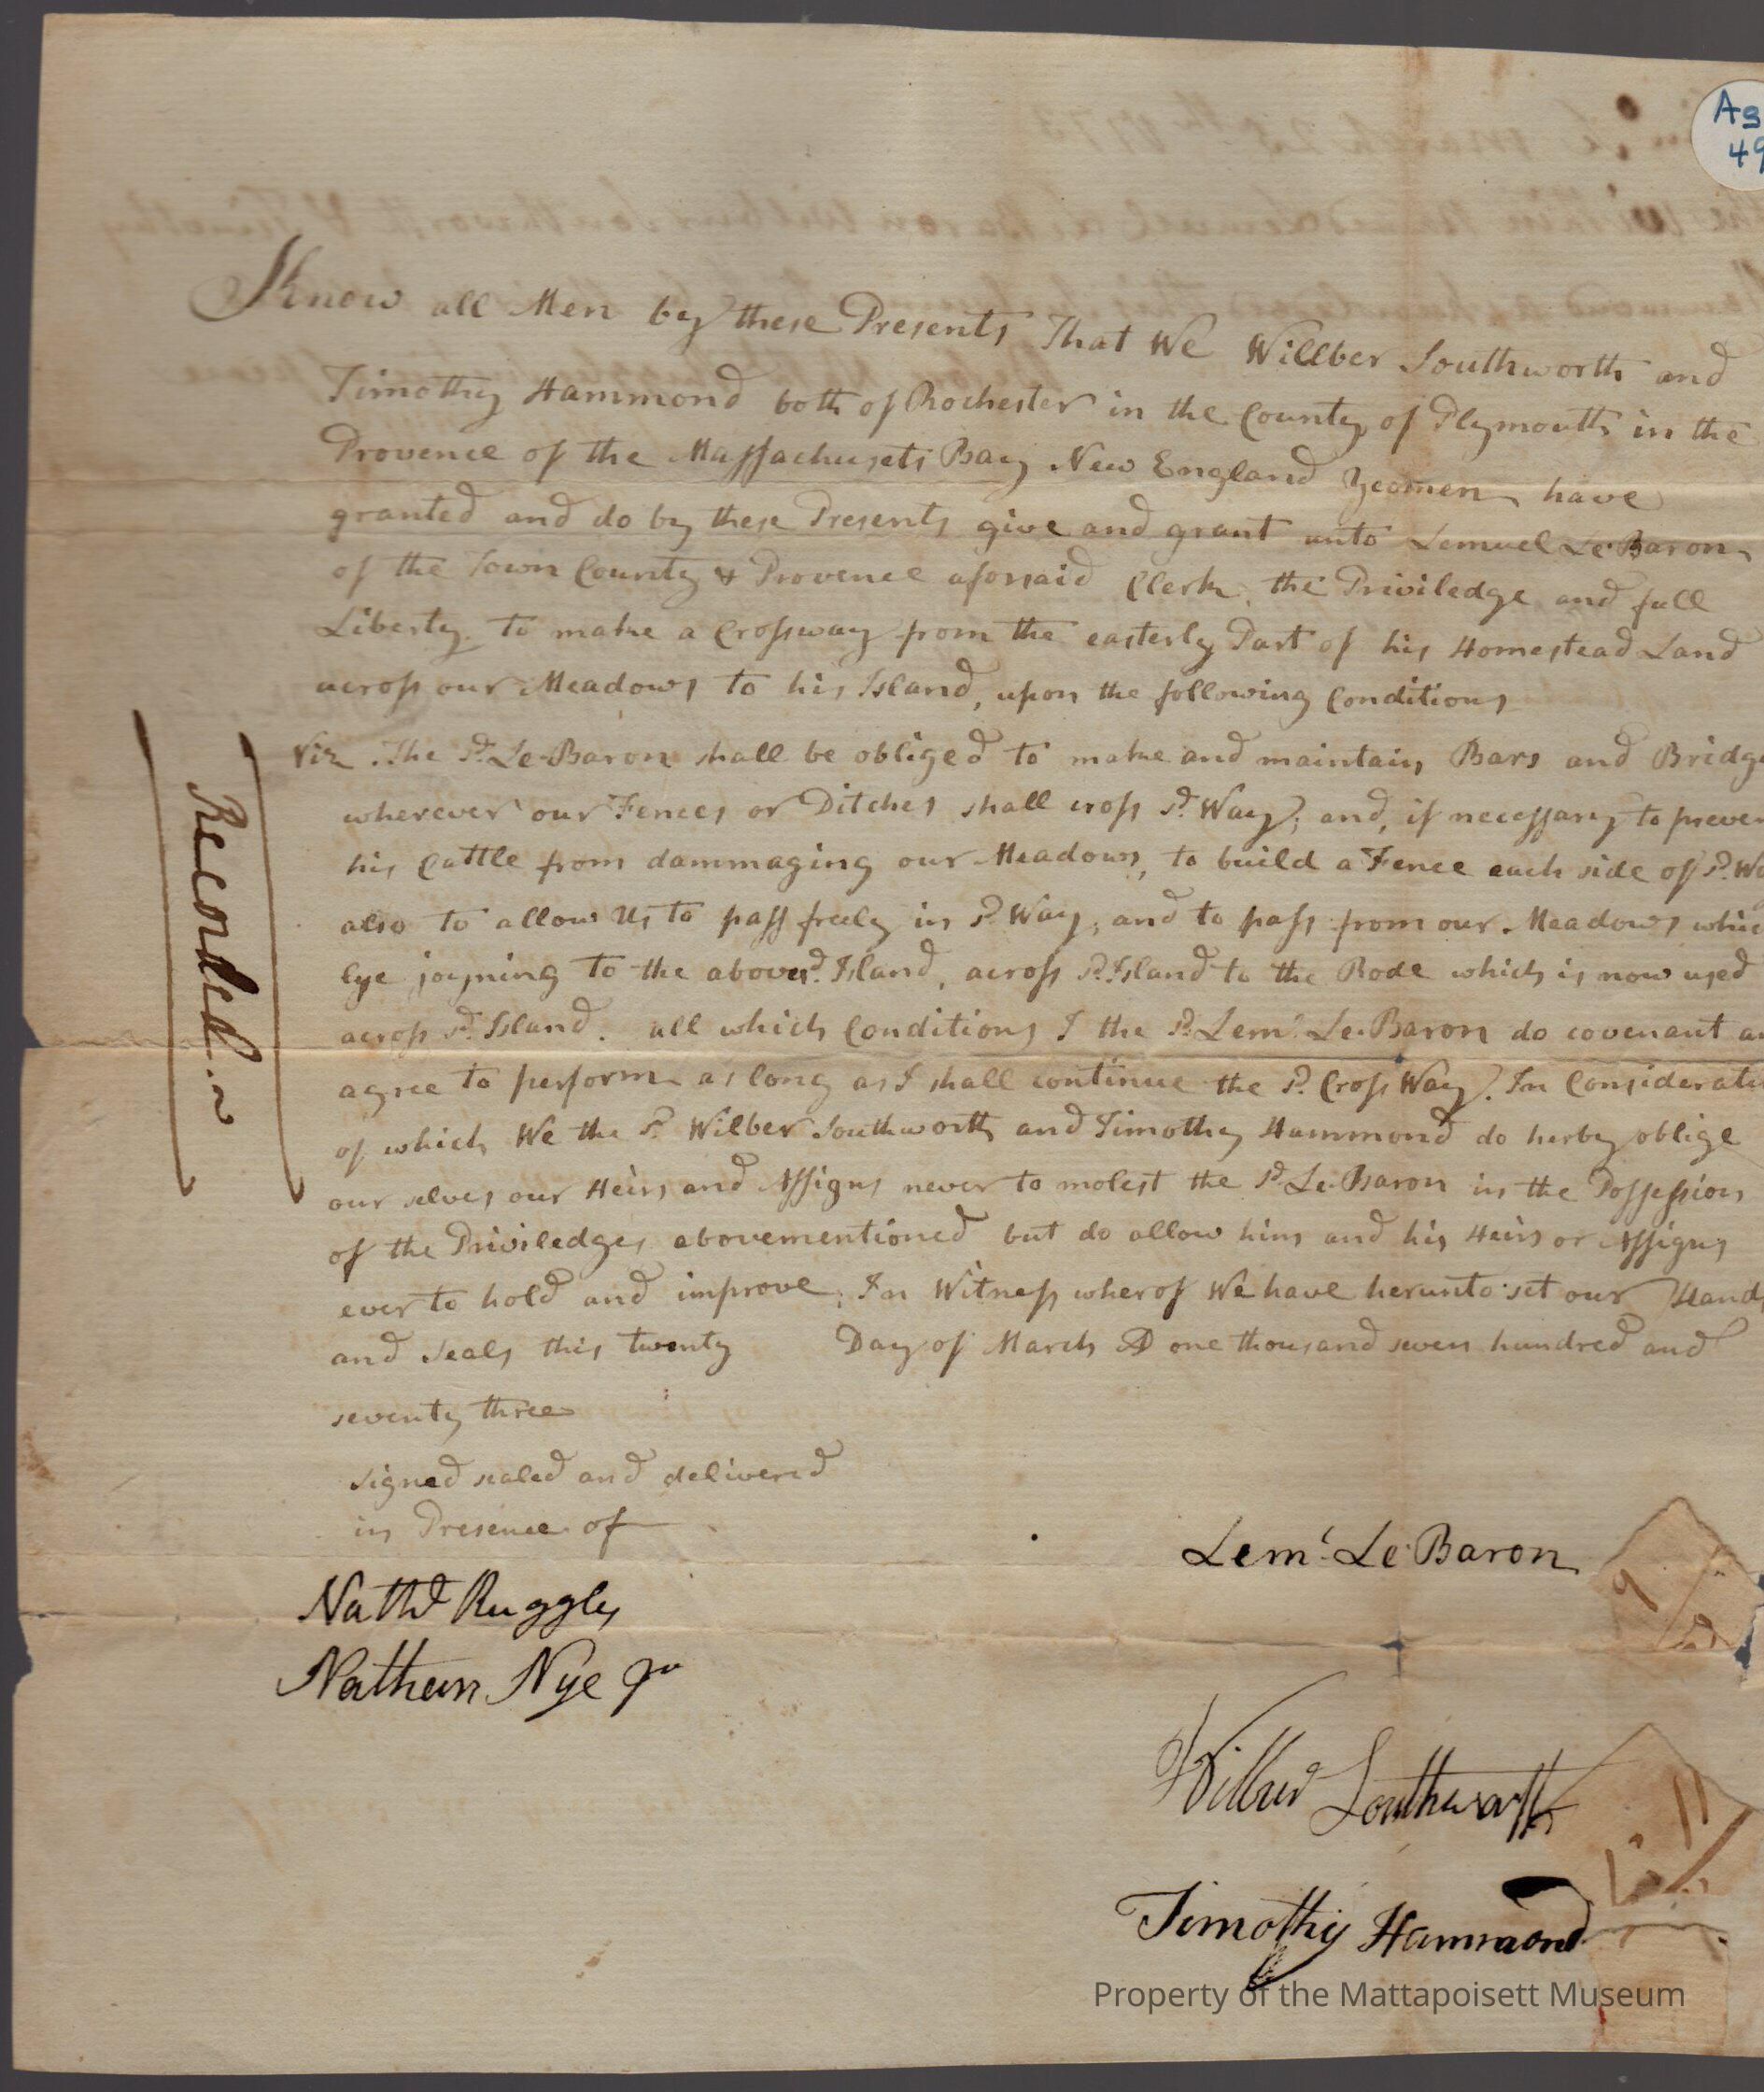 As
49
Know all Men by these Presents That We Willber Southworth and
Timothy Hammond both of Rochester in the County of Plymouth in the
Provence of the Massachusets Bay New England Yeomen have
granted and do by these Presents give and grant unto Lemuel Le Baron
of the Town County & Provence aforsaid Clerk, the Priviledge and full
Liberty to make a Crossway from the easterly Part of his Homestead Land
across our Meadows to his Island, upon the following Conditions
Viz. The sd. Le-Baron shall be obliged to make and maintain Bars and Bridge
wherever our Fences or Ditches shall cross sd. Way; and, if necessary to preven
his Cattle from dammaging our Meadows, to build a Fence each side of sd. Wa
also to allow Us to pass freely in sd. Way, and to pass from our Meadows whic
lye joyning to the abovesd. Island, across sd. Island to the Rode which is now used
across sd. Island. all which Conditions I the sd. Leml. Le-Baron do covenant an
agree to perform as long as I shall continue the sd. Cross Way. In Consideratio
of which We the sd. Wilber Southworth and Timothy Hammond do herby oblige
our selves our Heirs and Assigns never to molest the sd. Le-Baron in the Possession
of the Priviledges abovementioned but do allow him and his Heirs or Assigns
ever to hold and improve. In Witness wherof We have herunto set our Hands
and Seals this twenty Day of March AD one thousand seven hundred and
seventy three
signed sealed and delivered
in Presence of
Recorded.
Leml. Le Baron
Nathll Ruggles
Nathan Nye Jur
Wilber Southworth
Timothy Hammond
Property of the Mattapoisett Museum